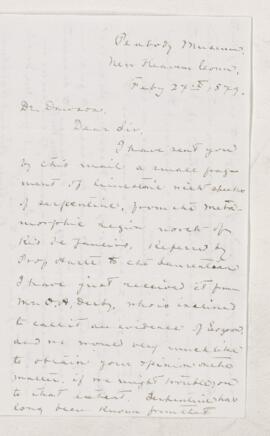 Peabody Museum,
New Haven Conn,
Feby 27th 1879.
Dr. Dawson.
Dear Sir.
I have sent you
by this mail a small frag-
ment of limestone with specks
of serpentine, from the meta-
morphic region north of
Rio de Janeiro, referred by
Prof Hartt to the Laurentian
I have just received it from
Mr. O. A. Derby, who is inclined
to call it an evidence of Eozoon,
and we would very much like
to obtain your opinion on the
matter, if we might trouble you
to that extent. Serpentine has
long been known from that